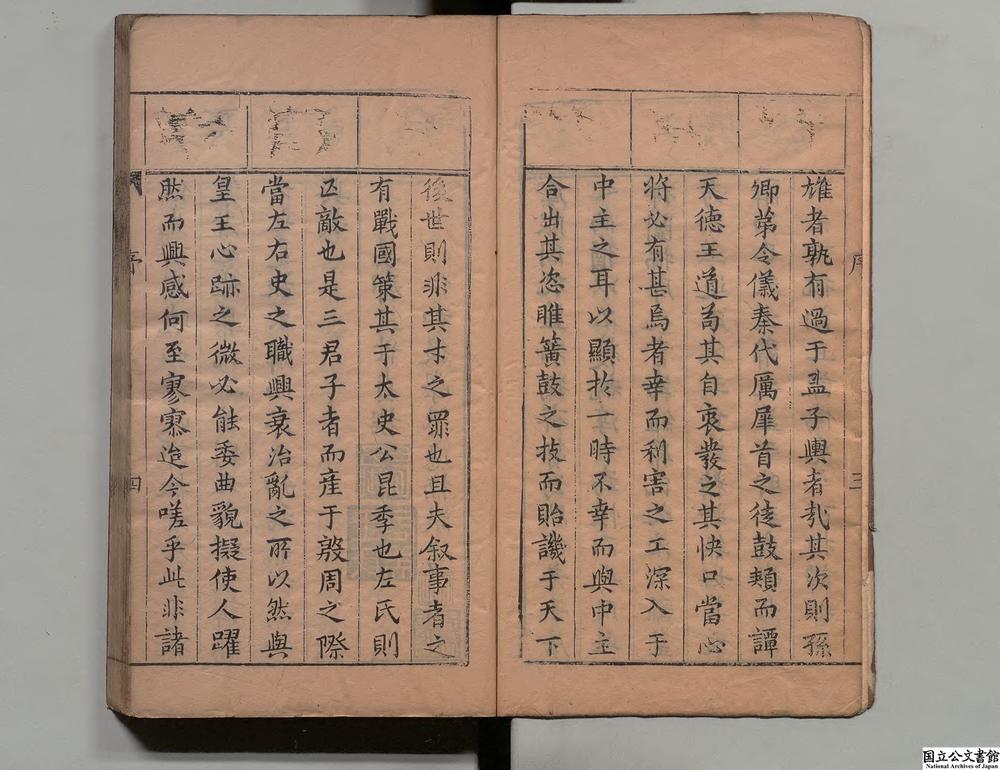 序
三
雄者孰有過于孟子輿者哉其次則孫
卿第令儀秦代厲犀首之徒鼓頰而譚
天德王道苟其自衷發之其快口當心
將必有甚焉者幸而利害之工深入于
中主之耳以顯於一時不幸而與中主
合出其恣睢簧鼓之技而貽譏于天下
後世則非其才之罪也且夫叙事者之
有戰國策其于太史公昆季也左氏則
匹敵也是三君子者而産于殷周之際
當左右史之職興衰治亂之所以然與
皇王心跡之微必能委曲貌擬使人躍
然而興感何至寥寥迨今嗟乎此非諸
序
四
国立公文書館
National Archives of Japan